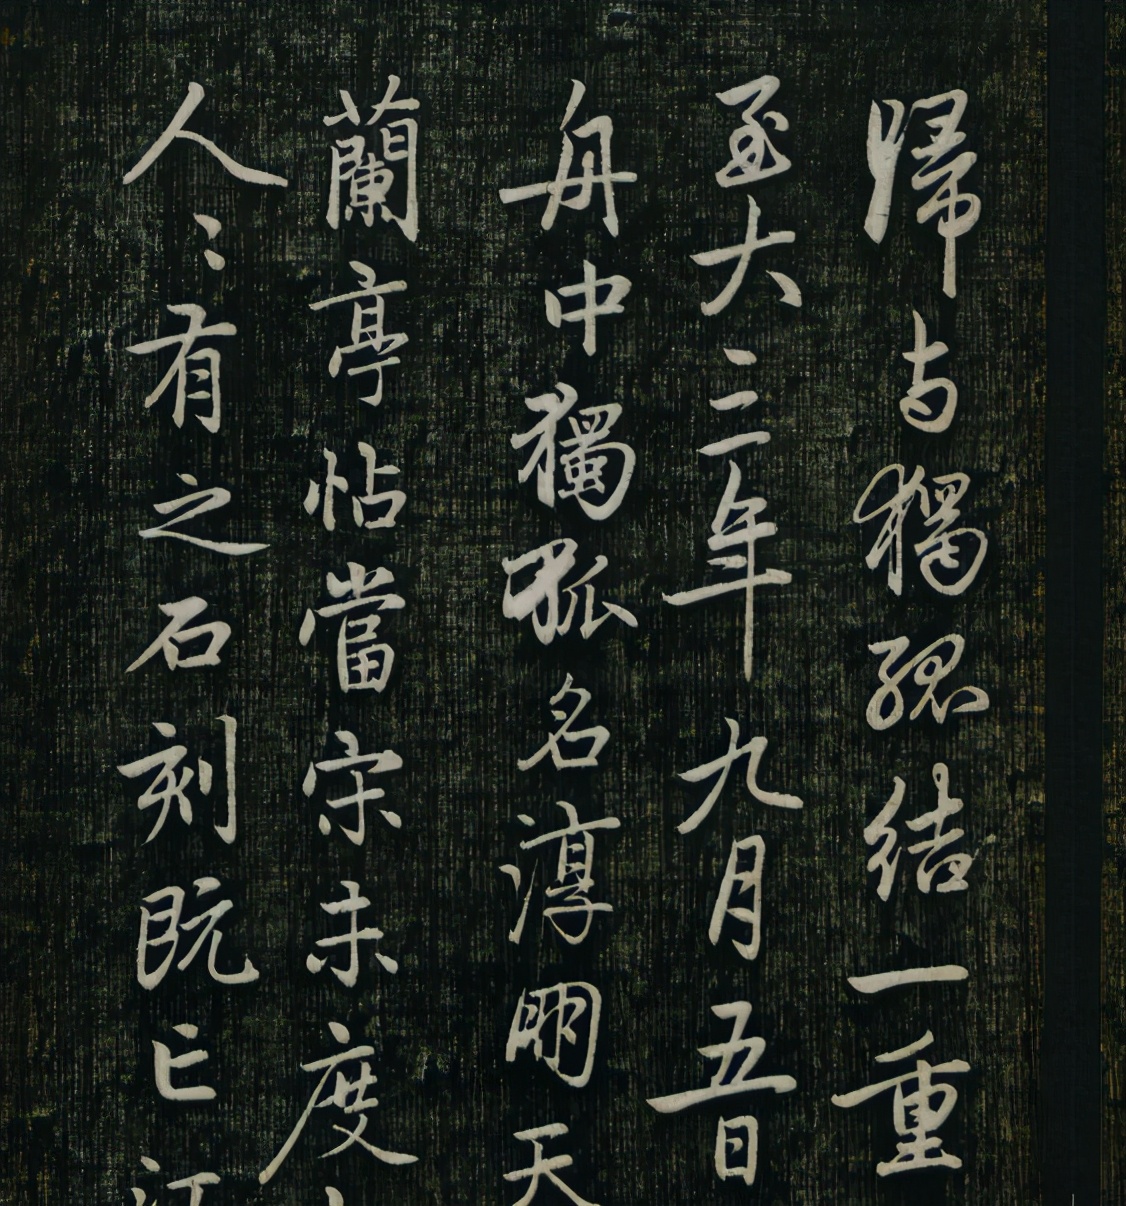 歸与獨孤結一重
至大三年九月五日
舟中獨孤名淳朋天
蘭亭帖當宋未度
人〻有之石刻既亡